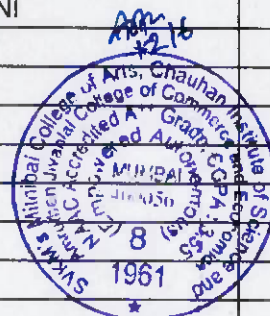 NI
SVKM'S Mithibai College of Arts, Chauhan Institute of Science and
Amrutben Jivanlal College of Commerce and Economics
NAAC Accredited Grade CGPA : 3.55
(Empowered Autonomous)
MUMBAI
8
1961